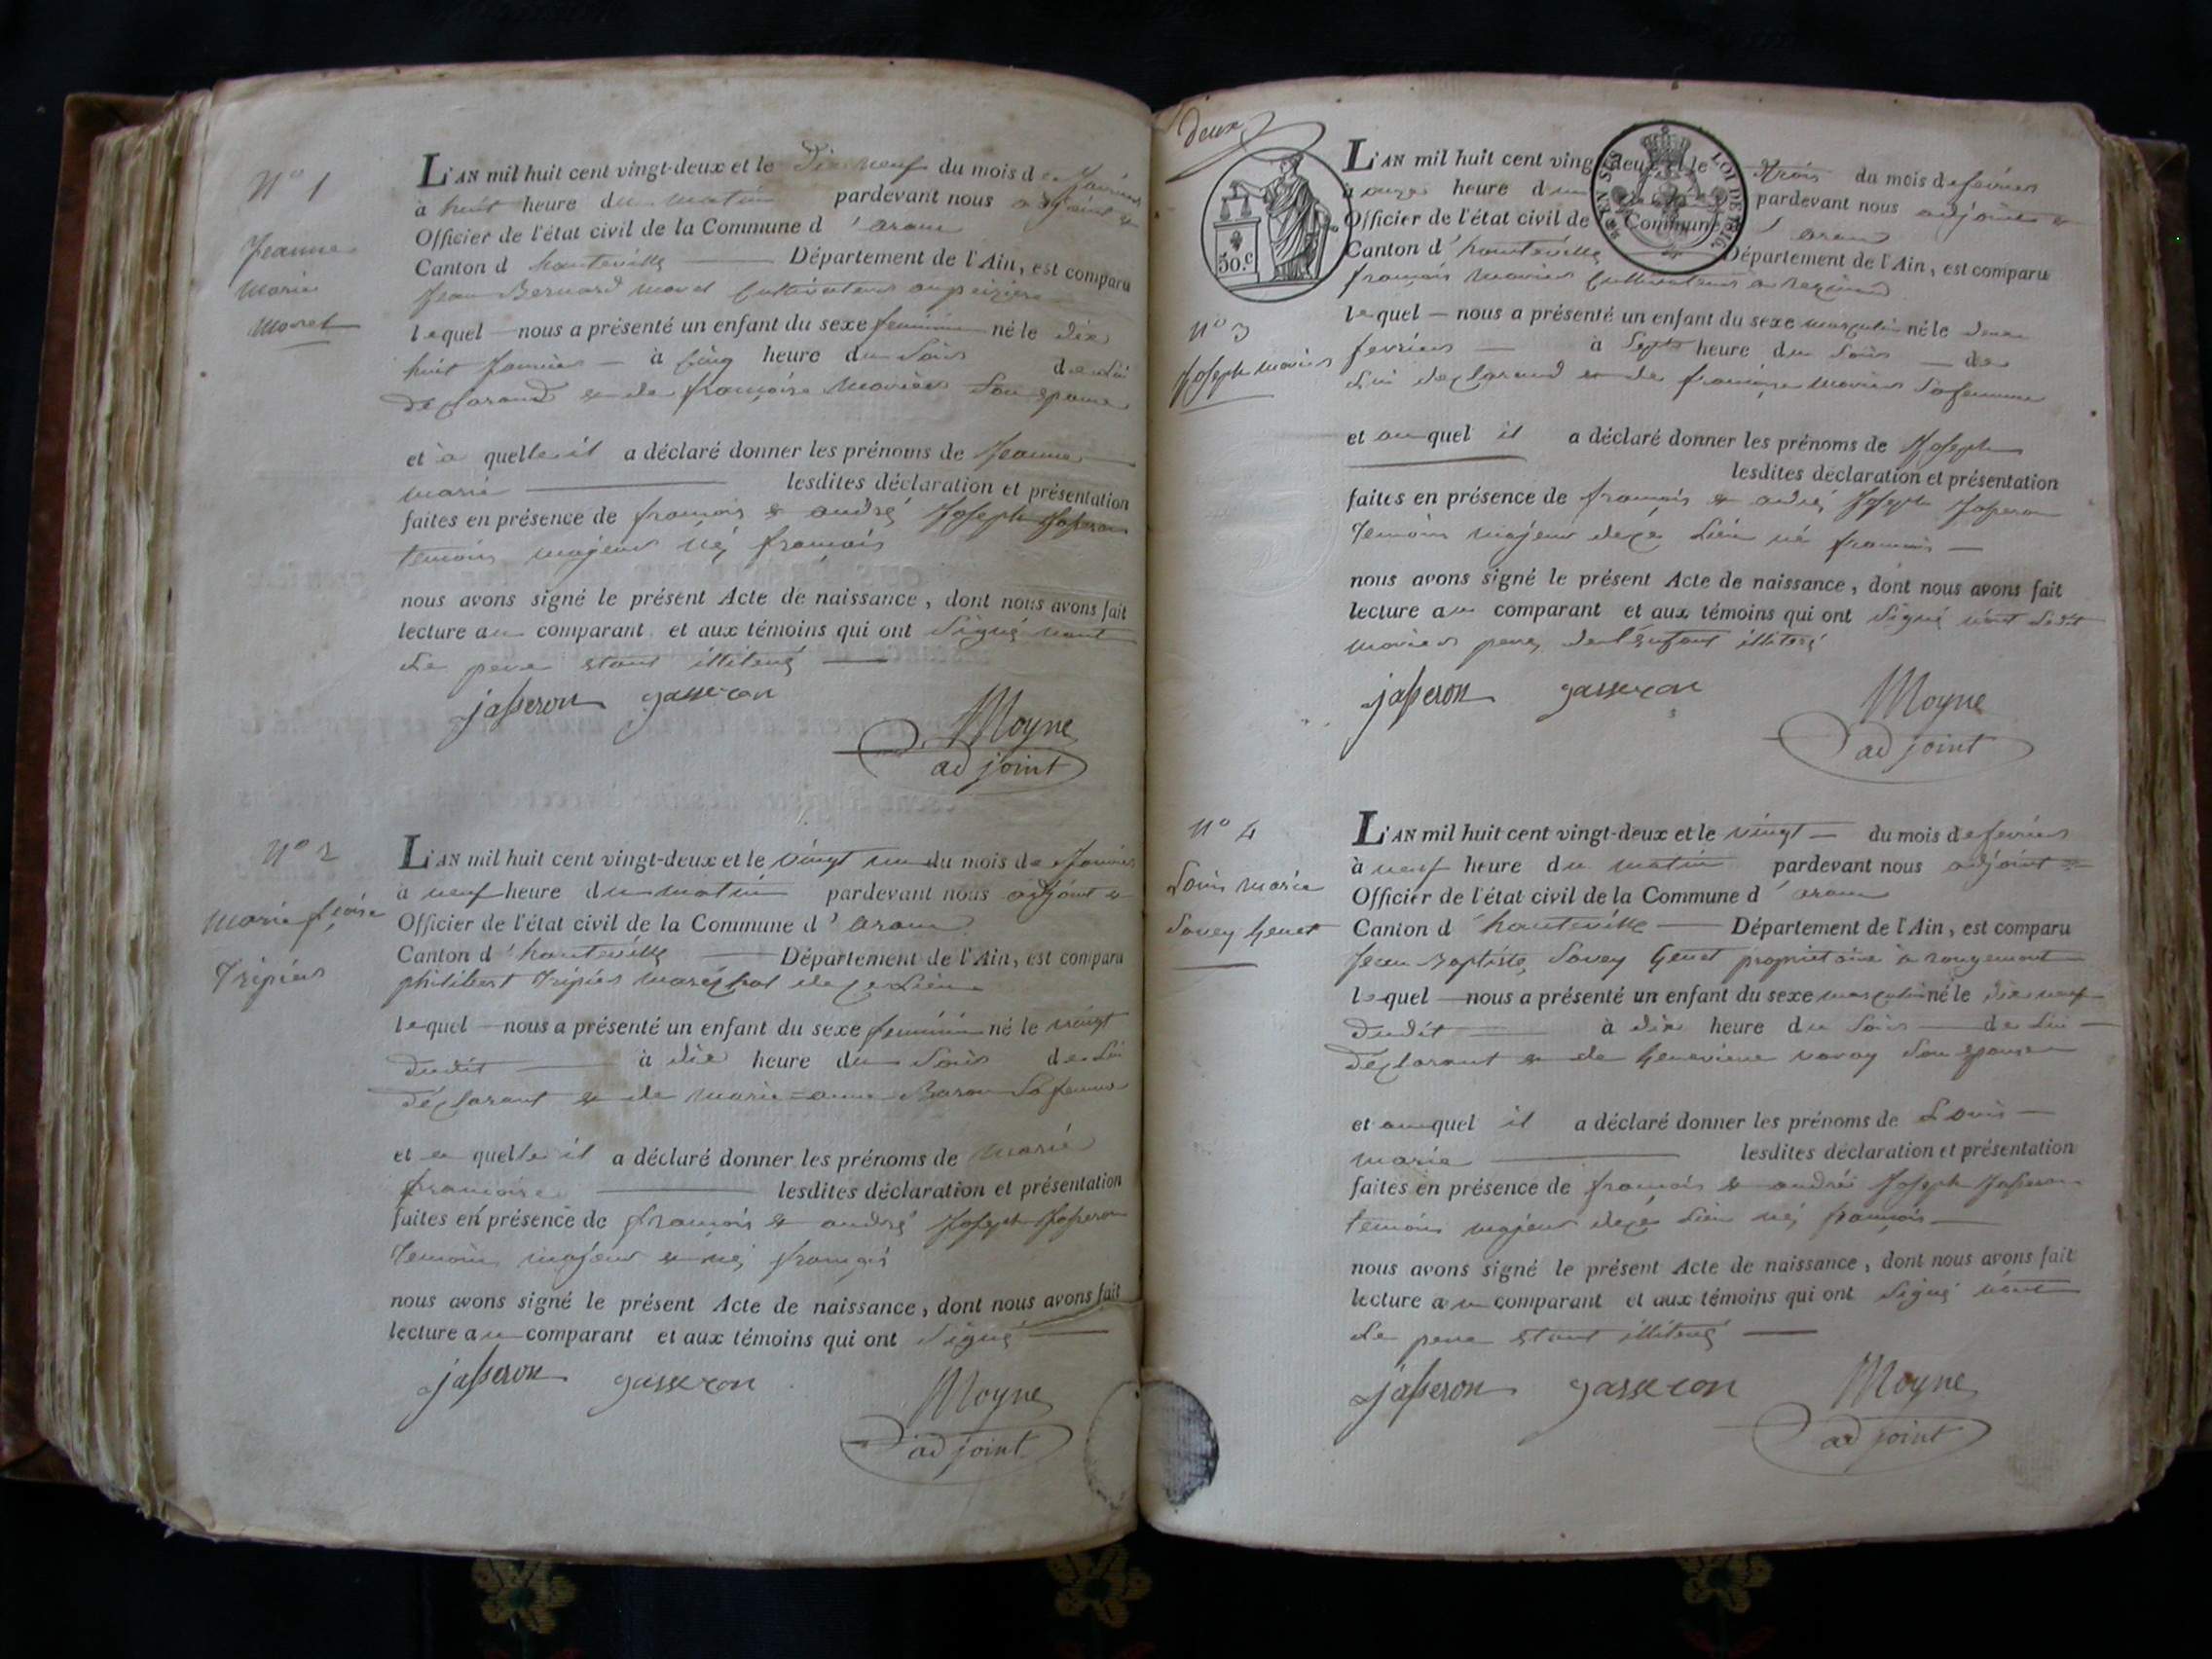 N° 1
Jeanne
Marie
Moret
L'AN mil huit cent vingt-deux et le Dix neuf du mois de Janvier
à huit heure du matin pardevant nous adjoint &
Officier de l'état civil de la Commune d'aranc
Canton d hauteville Département de l'Ain, est comparu
Jean Bernard Moret Cultivateur
lequel nous a présenté un enfant du sexe feminin né le dix
huit Janvier à Cinq heure du Soir de Lui
declarand & de françoise Mavier Son epouse
et à quelle il a déclaré donner les prénoms de Jeanne
marie lesdites déclaration et présentation
faites en présence de françois & andré Joseph Jasseron
temoins majeur né françois
nous avons signé le présent Acte de naissance, dont nous avons fait
lecture au comparant et aux témoins qui ont Signé
Le pere etant illiteré
jasseron gasseron
Moyne
adjoint
N° 2
Marie fçoise
Tripier
L'AN mil huit cent vingt-deux et le vingt un du mois de Janvier
à neuf heure du matin pardevant nous adjoint &
Officier de l'état civil de la Commune d'aranc
Canton d'hauteville Département de l'Ain, est comparu
philibert Tripier maréchal de ce Lieu
lequel nous a présenté un enfant du sexe feminin né le vingt
dudit à dix heure du Soir de Lui
déclarant & de marie-anne Baron Sa femme
et a quelle il a déclaré donner les prénoms de marie
françoise lesdites déclaration et présentation
faites en présence de françois & andré Joseph Jasseron
temoins majeur & né françois
nous avons signé le présent Acte de naissance, dont nous avons fait
lecture au comparant et aux témoins qui ont Signé
jasseron gasseron
Moyne
adjoint
deux
50.c
EN SUS LOI DE 1816
N° 3
Joseph Mavier
L'AN mil huit cent vingt-deux et le Trois du mois de fevrier
à onze heure du pardevant nous adjoint &
Officier de l'état civil de la Commune d'aranc
Canton d'hauteville Département de l'Ain, est comparu
françois Mavier Cultivateur
lequel nous a présenté un enfant du sexe masculin né le deux
fevrier à Sept heure du Soir de
Lui declarand & de françoise Mavier Sa femme
et auquel il a déclaré donner les prénoms de Joseph
lesdites déclaration et présentation
faites en présence de françois & andré Joseph Jasseron
Temoins majeur de ce Lieu né françois
nous avons signé le présent Acte de naissance, dont nous avons fait
lecture au comparant et aux témoins qui ont Signé Ledit
Mavier pere de l'enfant illiteré
jasseron gasseron
Moyne
adjoint
N° 4
Louis Marie
Savey Genet
L'AN mil huit cent vingt-deux et le vingt du mois de fevrier
à neuf heure du matin pardevant nous adjoint &
Officier de l'état civil de la Commune d'aranc
Canton d'hauteville Département de l'Ain, est comparu
Jean Baptiste Savey Genet proprietaire à rougemont
lequel nous a présenté un enfant du sexe masculin né le dix neuf
dudit à dix heure du Soir de Lui
déclarant & de Genevieve Son epouse
et auquel il a déclaré donner les prénoms de Louis
marie lesdites déclaration et présentation
faites en présence de françois & andré Joseph Jasseron
temoins majeur de ce Lieu né françois
nous avons signé le présent Acte de naissance, dont nous avons fait
lecture au comparant et aux témoins qui ont Signé
Le pere etant illiteré
jasseron gasseron
Moyne
adjoint